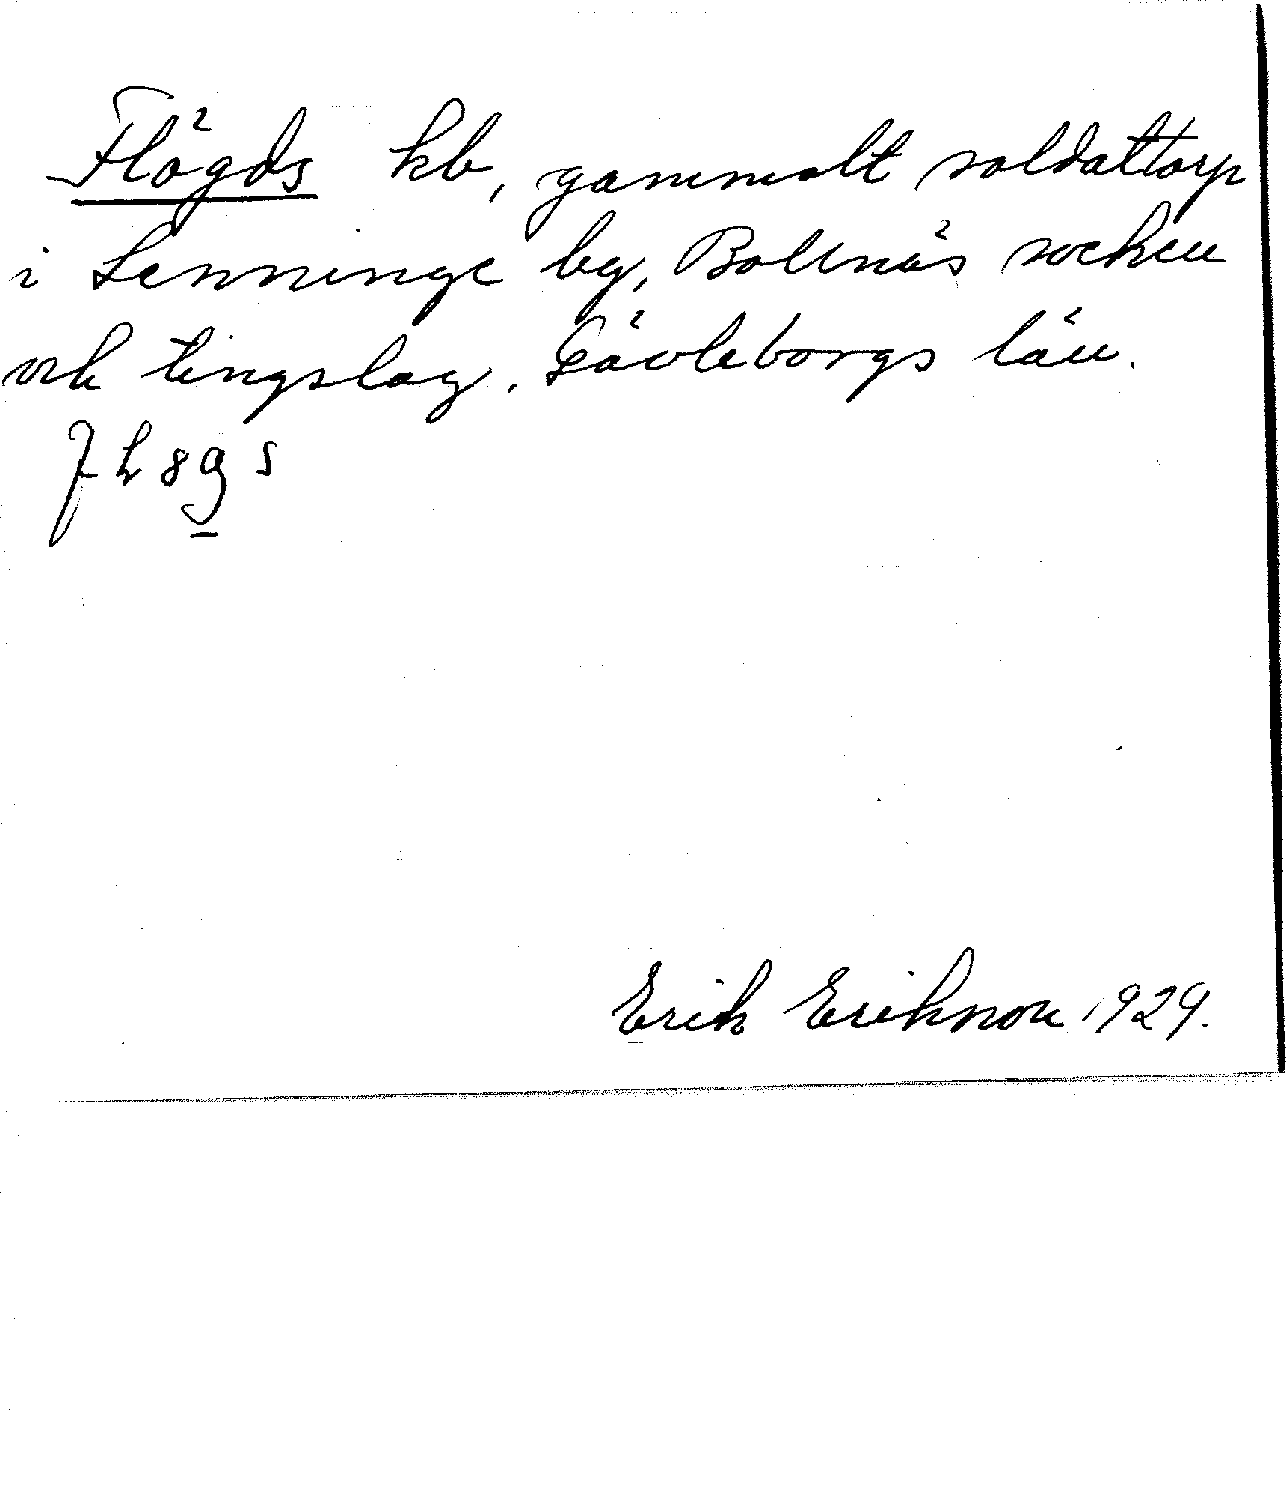 Flögds kb, gammalt soldattorp
i Lenninge by, Bollnäs socken
ock tingslag. Gävleborgs län.
Erik Eriksson 1929.